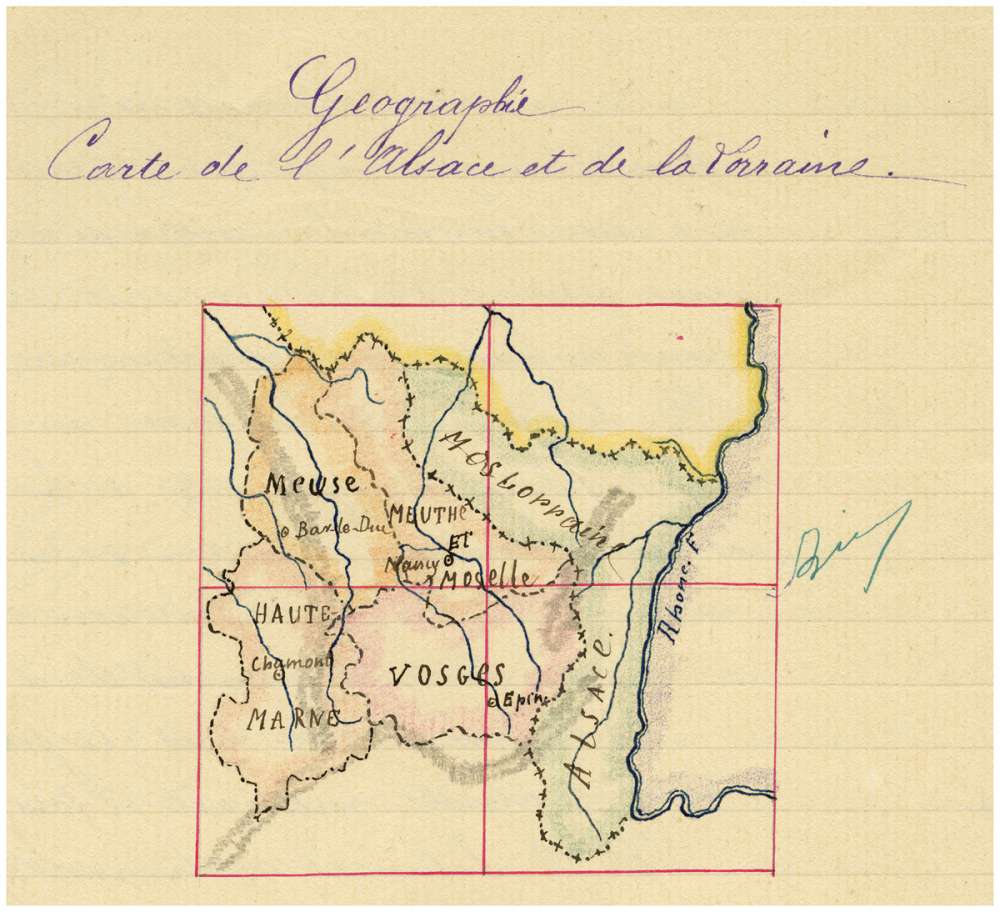 Geographie
Carte de l'Alsace et de la Lorraine.
MosLorrain
Meuse
MEUTHE
Bar-le-Duc
ET
Nancy
Moselle
Rhone. F.
HAUTE
Chamont
VOSGES
Epin
MARNE
Alsace.